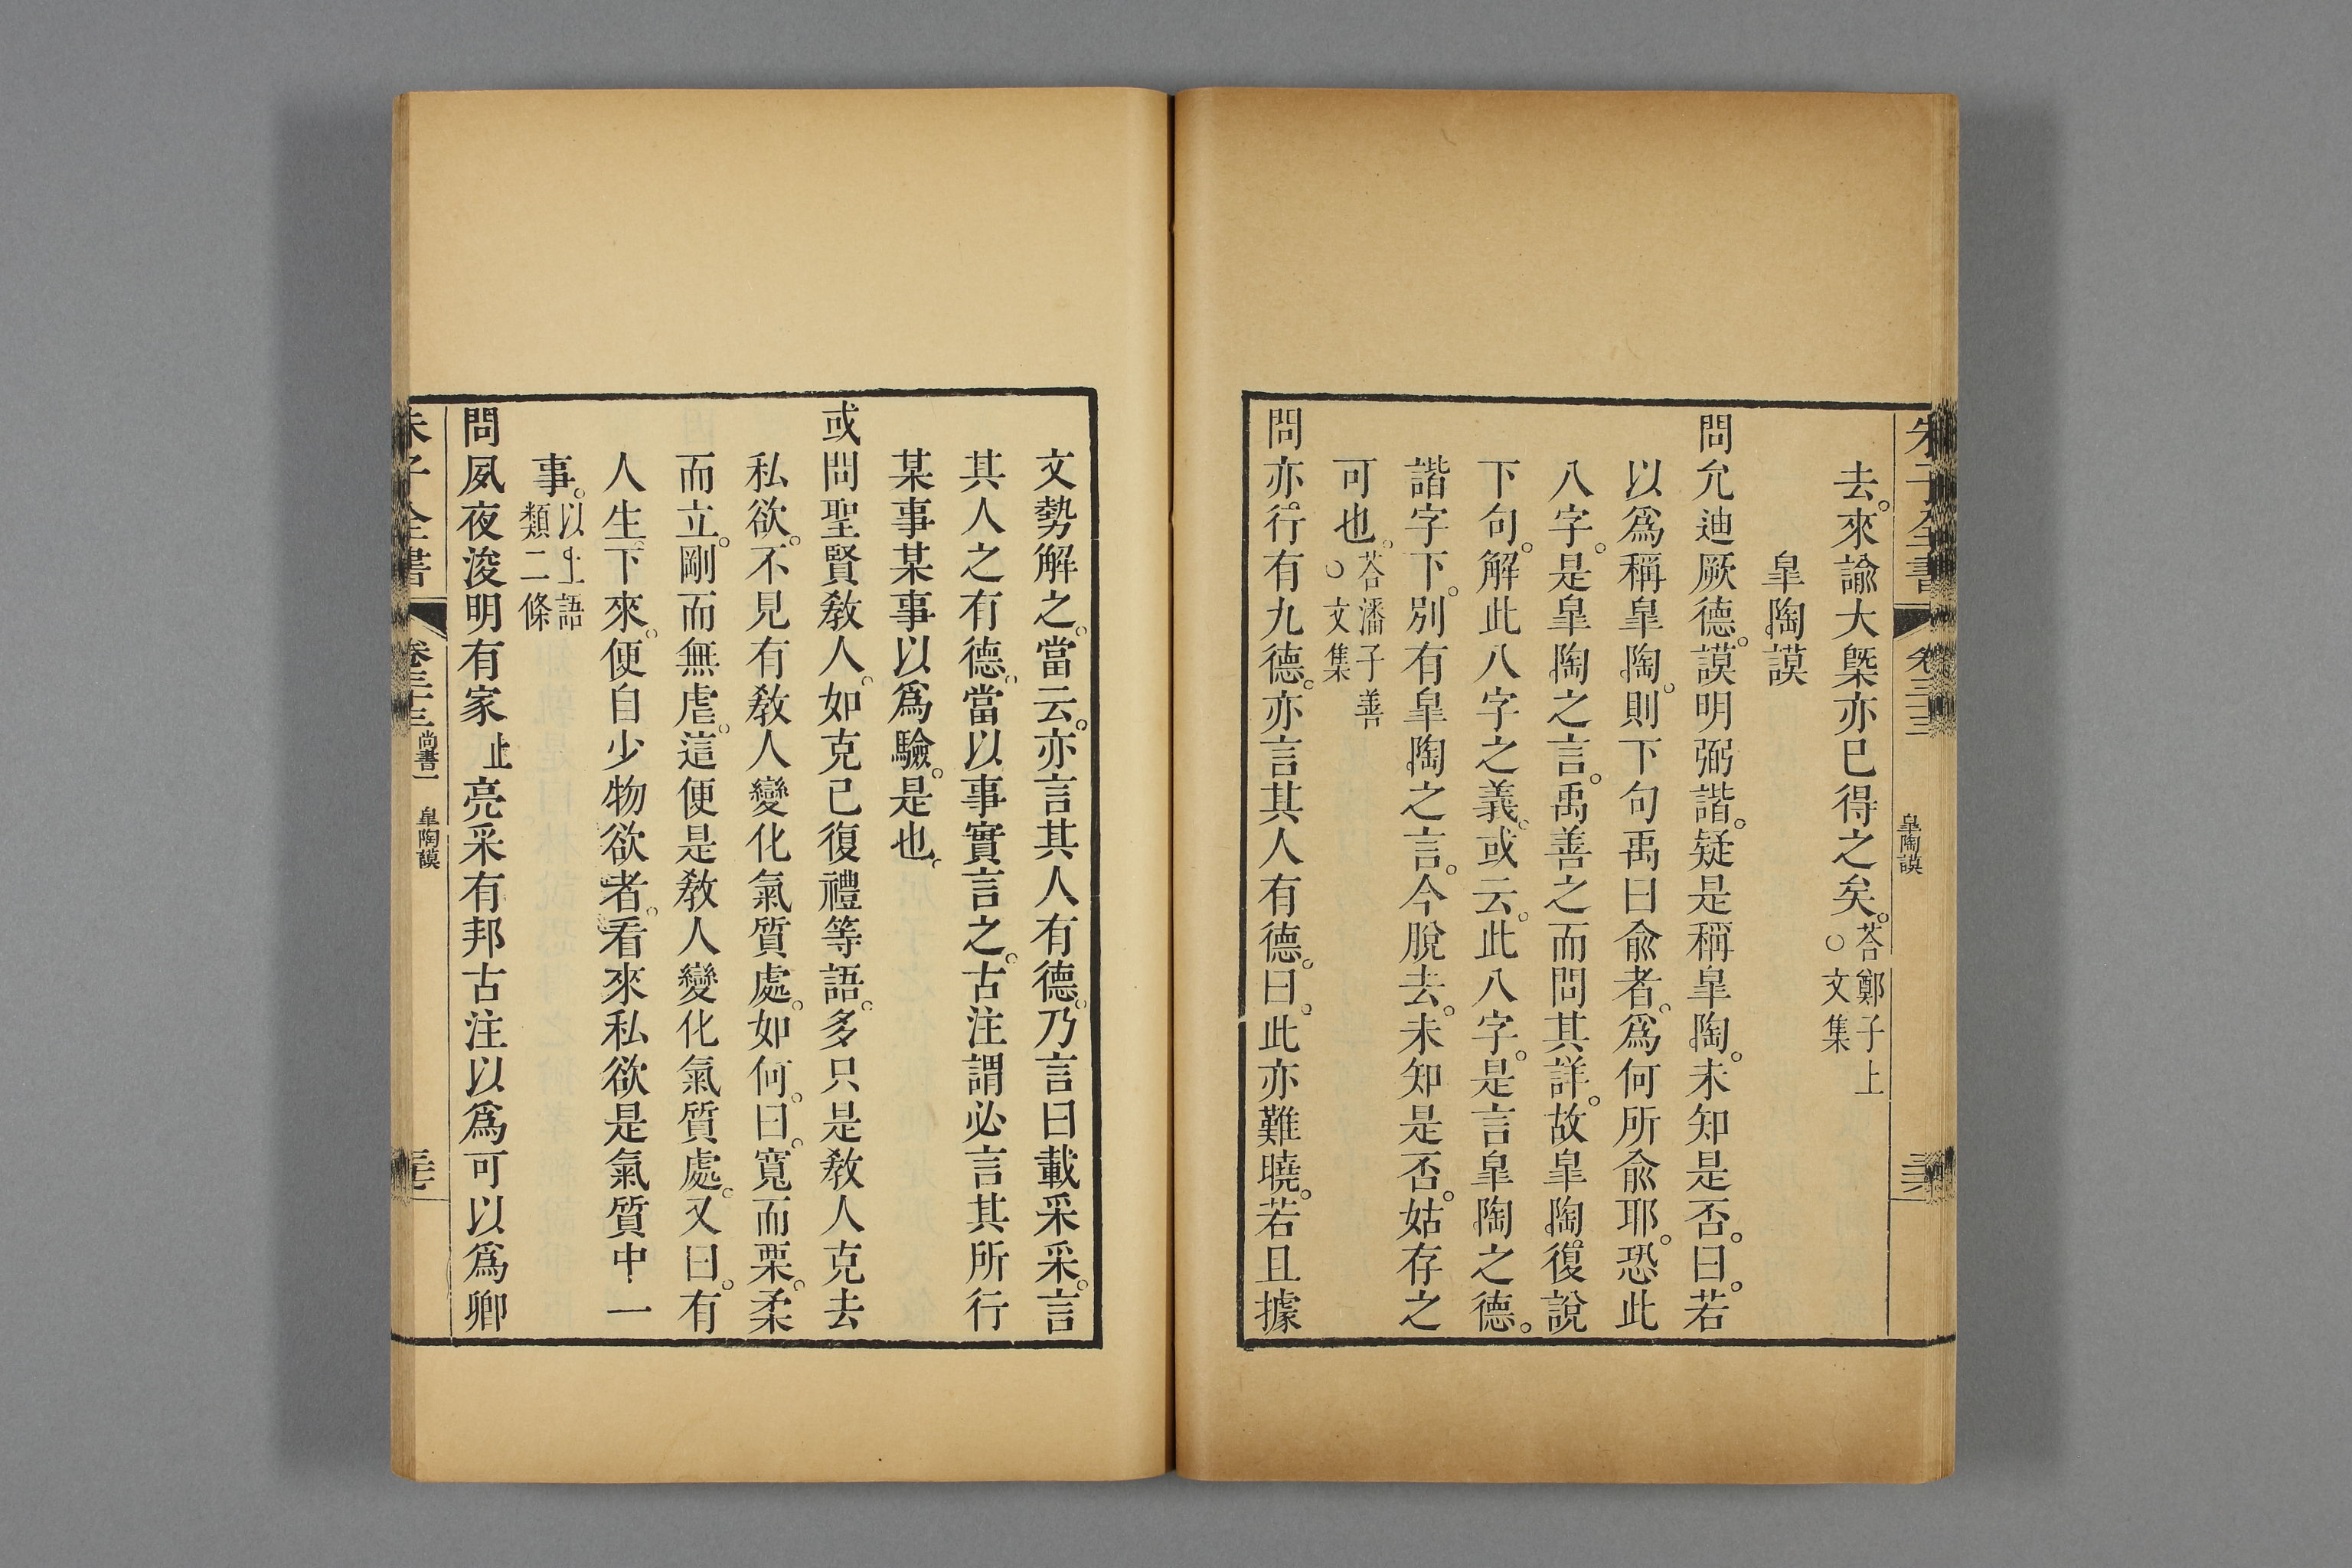 去。來諭大槩亦巳得之矣。荅鄭子上○文集
皐陶謨
問允迪厥德。謨明弼諧。疑是稱皐陶。未知是否。曰。若
以爲稱皐陶。則下句禹曰兪者。爲何所兪耶。恐此
八字。是皐陶之言。禹善之而問其詳。故皐陶。復說
下句。解此八字之義。或云。此八字。是言皐陶之德。
諧字下。別有皐陶之言。今脫去。未知是否。姑存之
可也。荅潘子善○文集
問亦。行有九德。亦言其人有德。曰。此亦難曉。若且據
皐陶謨
文勢解之。當云。亦言其人有德。乃言曰載采采。言
其人之有德。當以事實言之。古注謂必言其所行
某事某事以爲驗。是也。
或問聖賢敎人。如克已復禮等語。多只是敎人克去
私欲。不見有敎人變化氣質處。如何。曰。寬而栗。柔
而立。剛而無虐。這便是敎人變化氣質處。又曰。有
人生下來。便自少物欲者。看來私欲是氣質中一
事。以上語類二條
問夙夜浚明有家止亮采有邦古注以爲可以爲卿
朱子全書 卷三十三 尚書一 皐陶謨